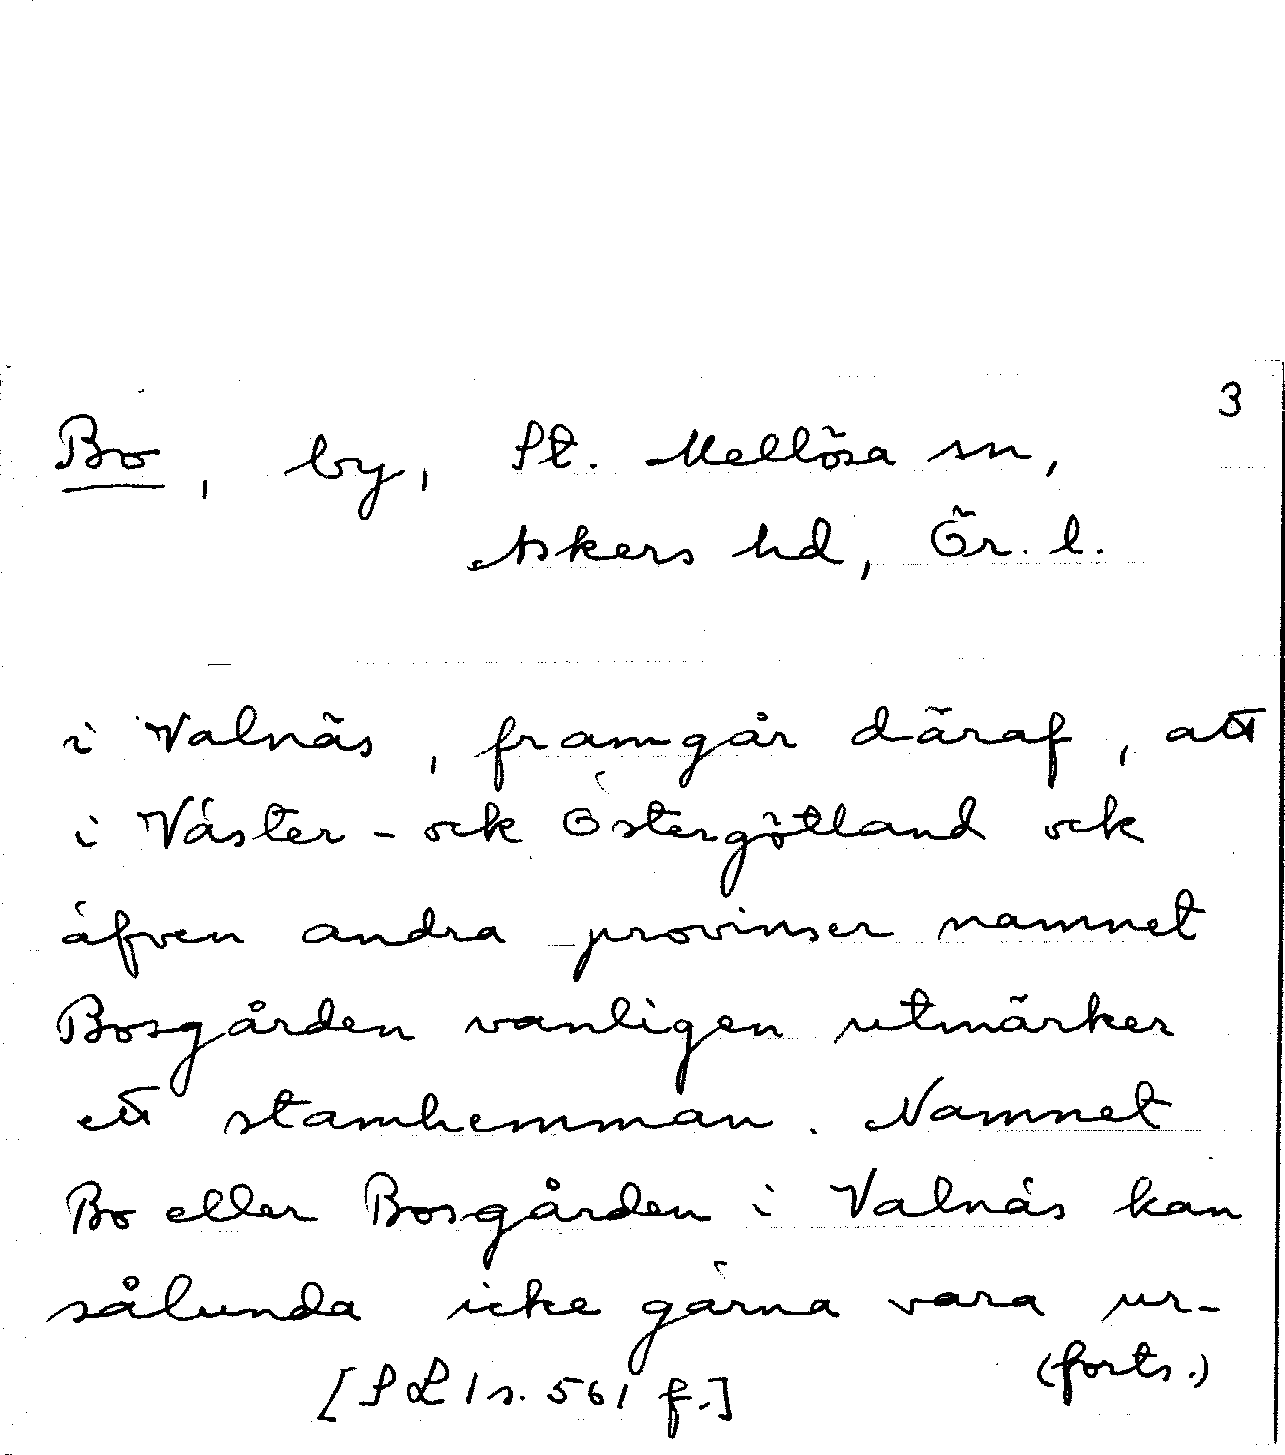 3
Bo, by, St. Mellösa sn,
Askers hd, Ör. l.
i Valnäs, framgår däraf, att
i Väster- ock Östergötland ock
äfven andra provinser namnet
Bosgården vanligen utmärker
ett stamhemman. Namnet
Bo eller Bosgården i Valnäs kan
sålunda icke gärna vara ur-
(forts.)
[SL 1 s. 561 f.]